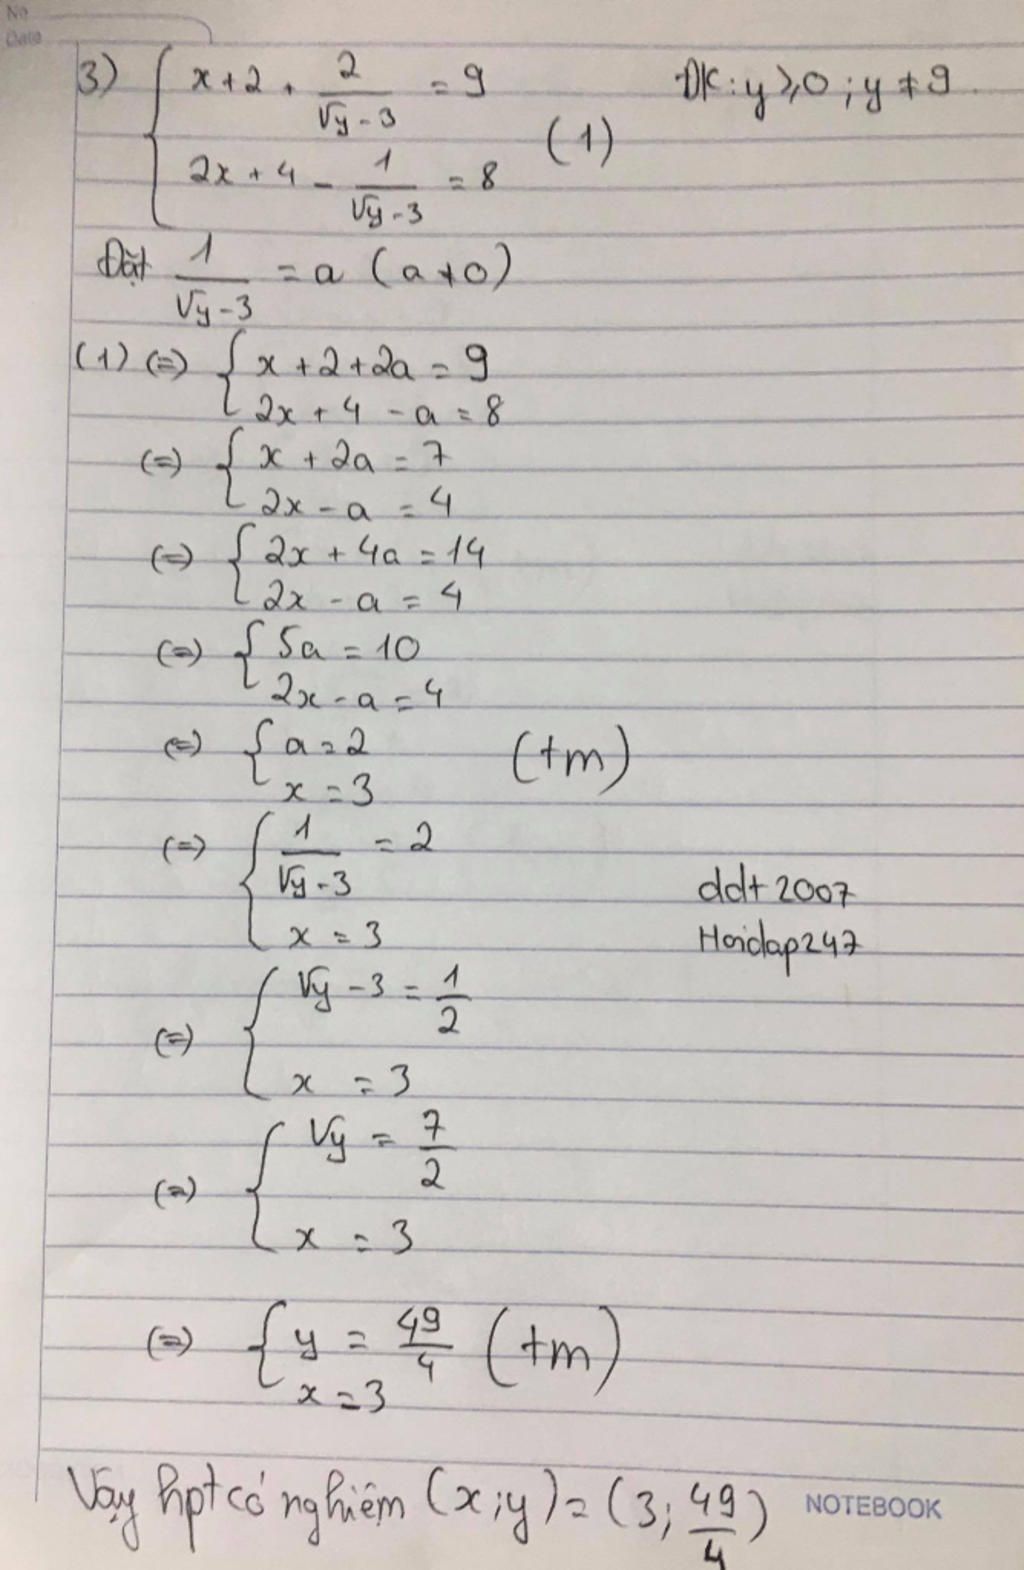 No
Date
3) { x + 2 + 2/(√y - 3) = 9 ĐK: y ≥ 0 ; y ≠ 9
2x + 4 - 1/(√y - 3) = 8 (1)
Đặt 1/(√y - 3) = a (a ≠ 0)
(1) (=) { x + 2 + 2a = 9
2x + 4 - a = 8
(=) { x + 2a = 7
2x - a = 4
(=) { 2x + 4a = 14
2x - a = 4
(=) { 5a = 10
2x - a = 4
(=) { a = 2 (tm)
x = 3
(=) { 1/(√y - 3) = 2
ddt2007
x = 3
Hoidap247
(=) { √y - 3 = 1/2
x = 3
(=) { √y = 7/2
x = 3
(=) { y = 49/4 (tm)
x = 3
Vậy hpt có nghiệm (x;y) = (3; 49/4)
NOTEBOOK